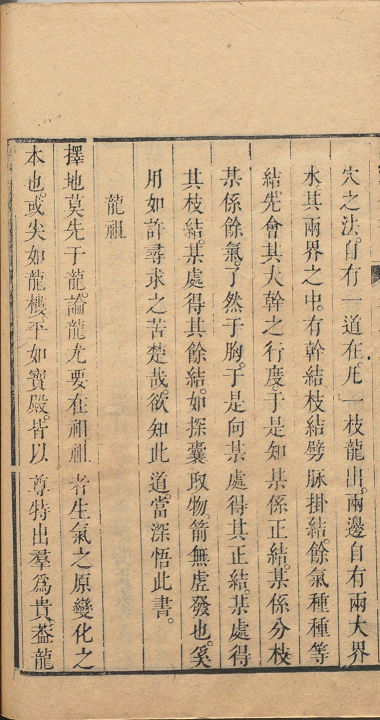 穴之法。自有一道在。凡一枝龍出。兩邊自有兩大界
水。其兩界之中。有幹結枝結劈脉掛結。餘氣種種等
結。先會其大幹之行度。于是知某係正結。某係分枝
某係餘氣。了然于胸。于是向某處得其正結。某處得
其枝結。某處得其餘結。如探囊取物箭無虛發也。奚
用如許尋求之苦楚哉。欲知此道。當深悟此書。
龍祖
擇地莫先于龍。論龍尤要在祖。祖者生氣之原。變化之
本也。或尖如龍樓。平如寶殿。皆以尊特出羣爲貴。葢龍